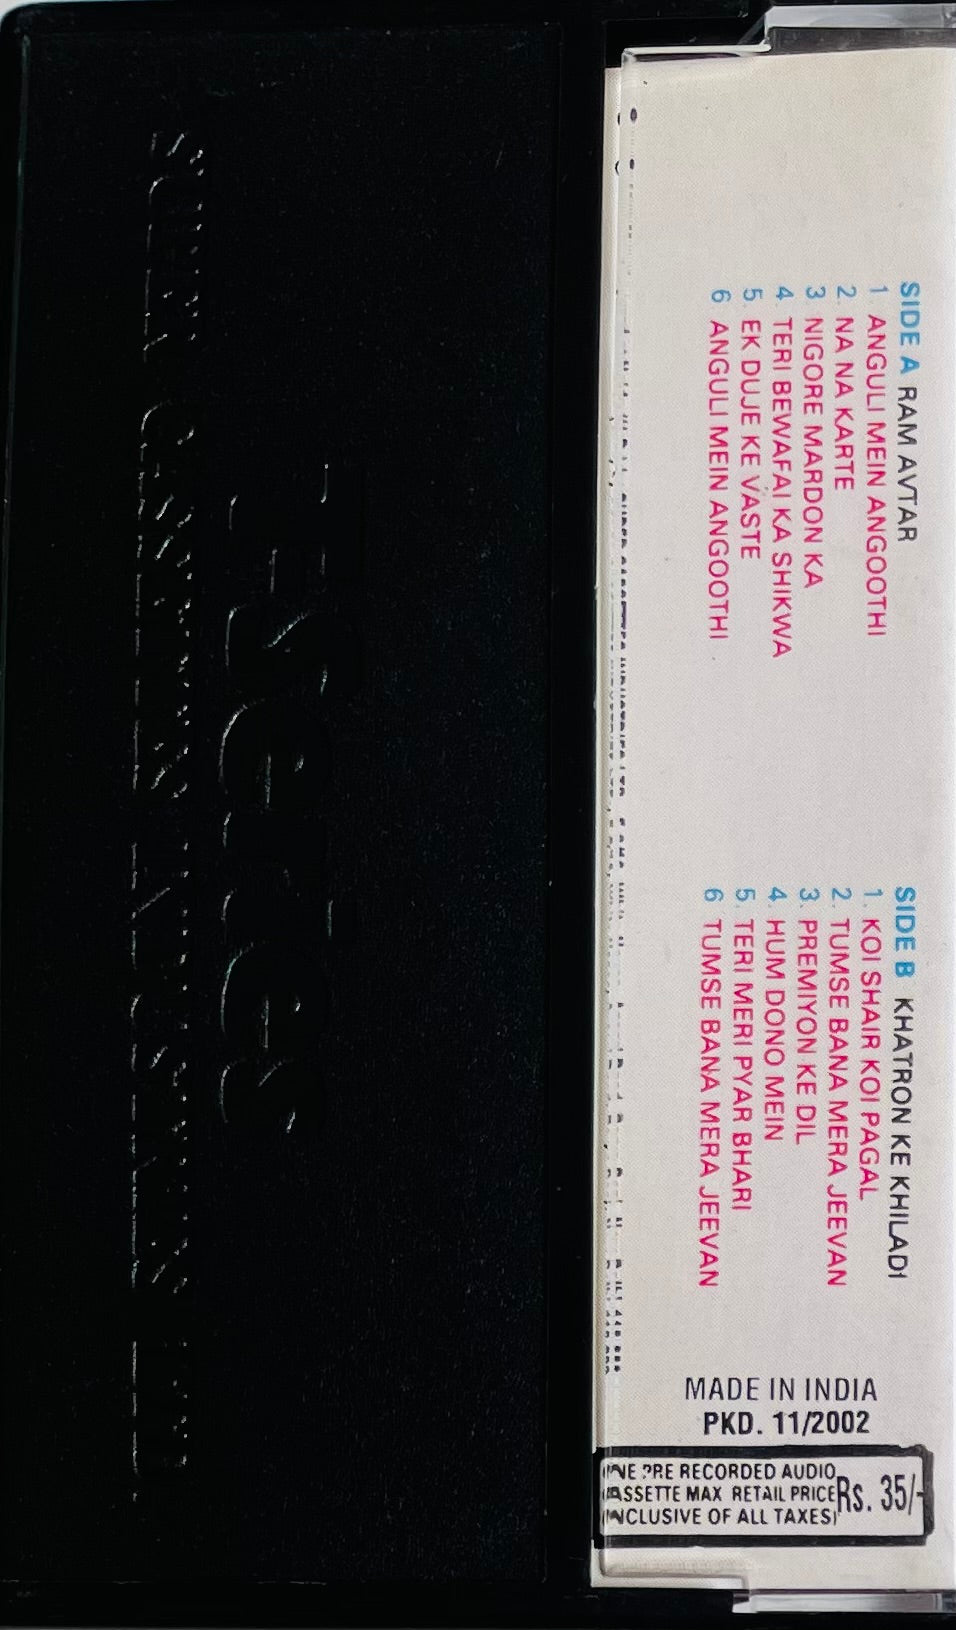 SIDE A RAM AVTAR
1. ANGULI MEIN ANGOOTHI
2. NA NA KARTE
3 NIGORE MARDON KA
4 TERI BEWAFAI KA SHIKWA
5. EK DUJE KE VASTE
6 ANGULI MEIN ANGOOTHI
SIDE B KHATRON KE KHILADI
1. KOI SHAIR KOI PAGAL
2. TUMSE BANA MERA JEEVAN
3. PREMIYON KE DIL
4. HUM DONO MEIN
5. TERI MERI PYAR BHARI
6 TUMSE BANA MERA JEEVAN
MADE IN INDIA
PKD. 11/2002
PRE RECORDED AUDIO
MAX RETAIL PRICE Rs. 35/-
OF ALL TAXES)
T-Series
SUPER CASSETTES INDUSTRIES LTD